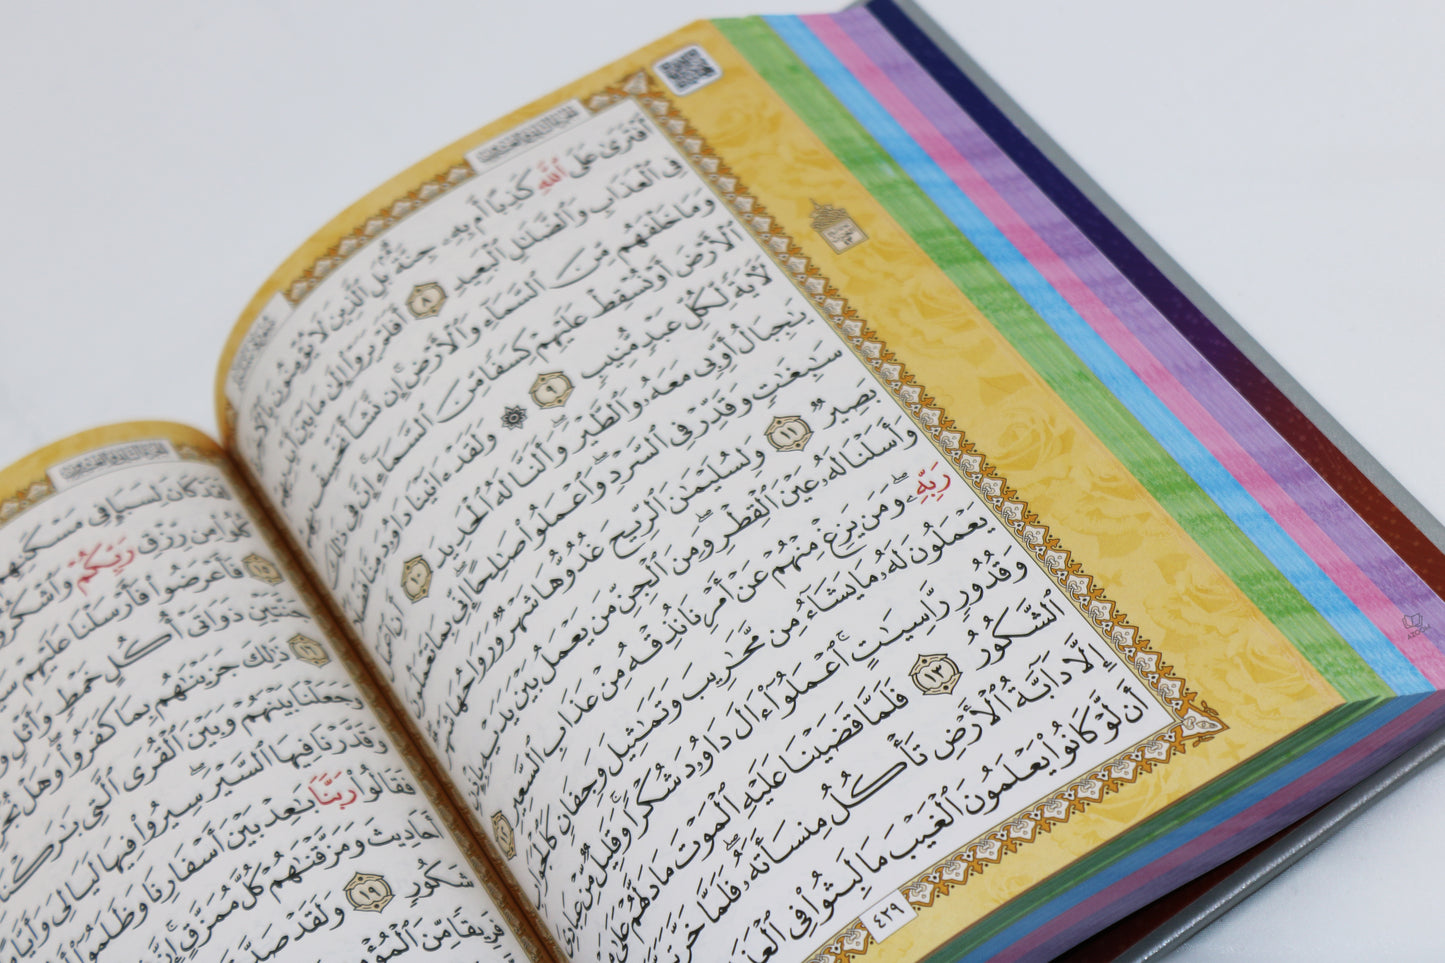 أَفْتَرَىٰ عَلَى ٱللَّهِ كَذِبًا أَم بِهِۦ جِنَّةٌۢ بَلِ ٱلَّذِينَ لَا يُؤْمِنُونَ
فِى ٱلْعَذَابِ وَٱلضَّلَٰلِ ٱلْبَعِيدِ ٨ أَفَلَمْ يَرَوْا۟ إِلَىٰ مَا بَيْنَ
وَمَا خَلْفَهُم مِّنَ ٱلسَّمَآءِ وَٱلْأَرْضِ إِن نَّشَأْ نَخْسِفْ
ٱلْأَرْضَ أَوْ نُسْقِطْ عَلَيْهِمْ كِسَفًا مِّنَ ٱلسَّمَآءِ إِنَّ فِى ذَٰلِكَ
لَـَٔايَةً لِّكُلِّ عَبْدٍ مُّنِيبٍ ٩ ۞ وَلَقَدْ ءَاتَيْنَا دَاوُۥدَ
يَٰجِبَالُ أَوِّبِى مَعَهُۥ وَٱلطَّيْرَ وَأَلَنَّا لَهُ ٱلْحَدِيدَ ١٠
سَٰبِغَٰتٍ وَقَدِّرْ فِى ٱلسَّرْدِ وَٱعْمَلُوا۟ صَٰلِحًا إِنِّى بِمَا تَعْمَلُونَ
بَصِيرٌ ١١ وَلِسُلَيْمَٰنَ ٱلرِّيحَ غُدُوُّهَا شَهْرٌ وَرَوَاحُهَا شَهْرٌ
وَأَسَلْنَا لَهُۥ عَيْنَ ٱلْقِطْرِ وَمِنَ ٱلْجِنِّ مَن يَعْمَلُ بَيْنَ يَدَيْهِ بِإِذْنِ
رَبِّهِۦ وَمَن يَزِغْ مِنْهُمْ عَنْ أَمْرِنَا نُذِقْهُ مِنْ عَذَابِ ٱلسَّعِيرِ ١٢
يَعْمَلُونَ لَهُۥ مَا يَشَآءُ مِن مَّحَٰرِيبَ وَتَمَٰثِيلَ وَجِفَانٍ كَٱلْجَوَابِ
وَقُدُورٍ رَّاسِيَٰتٍ ٱعْمَلُوٓا۟ ءَالَ دَاوُۥدَ شُكْرًا وَقَلِيلٌ مِّنْ عِبَادِىَ
ٱلشَّكُورُ ١٣ فَلَمَّا قَضَيْنَا عَلَيْهِ ٱلْمَوْتَ مَا دَلَّهُمْ عَلَىٰ
إِلَّا دَآبَّةُ ٱلْأَرْضِ تَأْكُلُ مِنسَأَتَهُۥ فَلَمَّا خَرَّ
أَن لَّوْ كَانُوا۟ يَعْلَمُونَ ٱلْغَيْبَ مَا لَبِثُوا۟ فِى ٱلْعَذَابِ
٤٢٩
لَقَدْ كَانَ لِسَبَإٍ فِى مَسْكَنِهِمْ
كُلُوا۟ مِن رِّزْقِ رَبِّكُمْ وَٱشْكُرُوا۟
١٥ فَأَعْرَضُوا۟ فَأَرْسَلْنَا عَلَيْهِمْ
جَنَّتَيْنِ ذَوَاتَىْ أُكُلٍ خَمْطٍ وَأَثْلٍ
١٦ ذَٰلِكَ جَزَيْنَٰهُم بِمَا كَفَرُوا۟ وَهَلْ
وَجَعَلْنَا بَيْنَهُمْ وَبَيْنَ ٱلْقُرَى ٱلَّتِى بَٰرَكْنَا
وَقَدَّرْنَا فِيهَا ٱلسَّيْرَ سِيرُوا۟ فِيهَا لَيَالِىَ وَأَيَّامًا
فَقَالُوا۟ رَبَّنَا بَٰعِدْ بَيْنَ أَسْفَارِنَا وَظَلَمُوٓا۟
أَحَادِيثَ وَمَزَّقْنَٰهُمْ كُلَّ مُمَزَّقٍ إِنَّ
شَكُورٍ ١٩ وَلَقَدْ صَدَّقَ
فَرِيقًا مِّنَ ٱلْمُؤْمِنِينَ
AZOOM